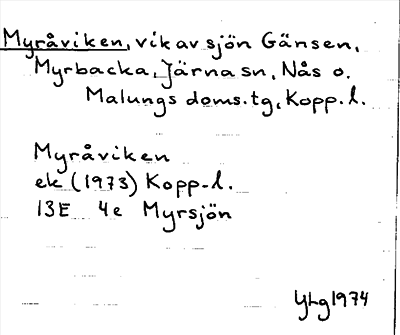 Myråviken, vik av sjön Gänsen,
Myrbacka, Järna sn, Nås o.
Malungs doms.tg, Kopp.l.
Myråviken
ek (1973) Kopp.l.
13E 4e Myrsjön
YLg 1974